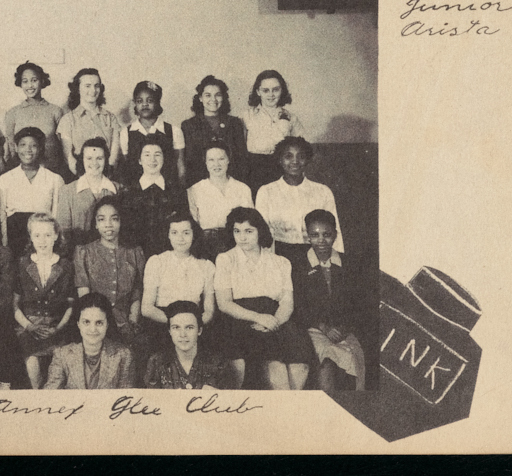 Junior
Arista
INK
Annex Glee Club